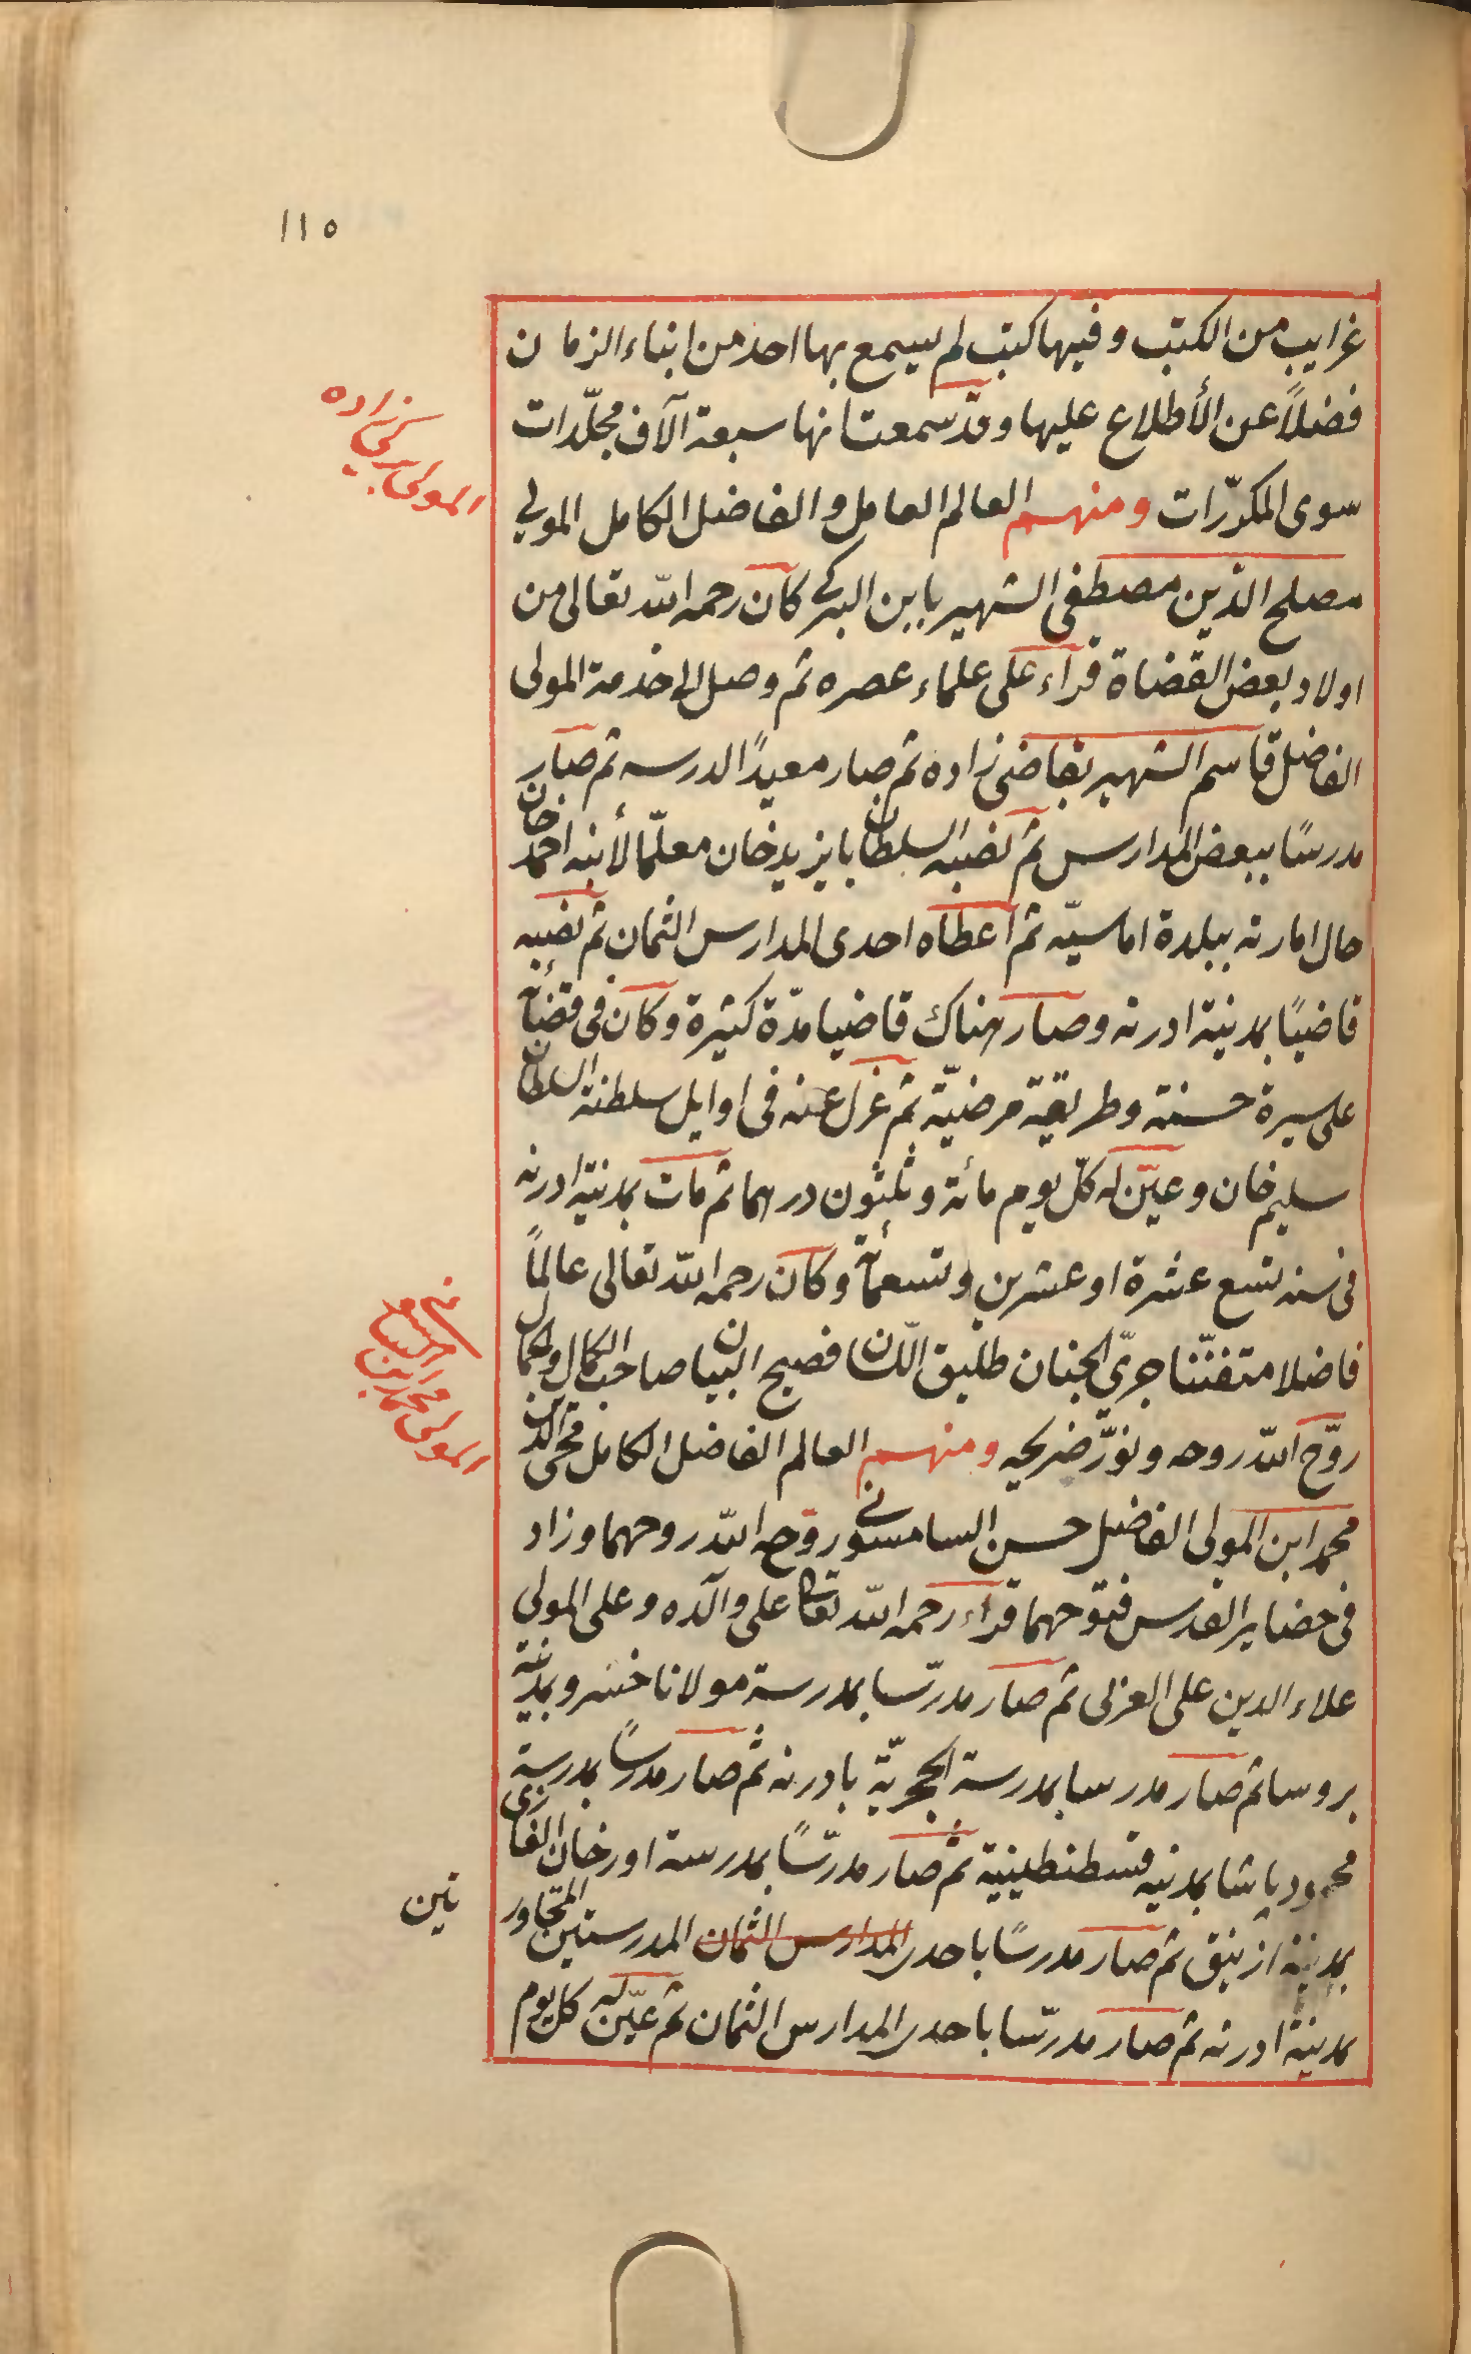 ١١٥
غرايب من الكتب وفيها كتب لم يسمع بها احد من ابناء الزمان
فضلاً عن الأطلاع عليها وقد سمعت انها سبعة الآف مجلّدات
المولى بركى زاده
سوى المكرّرات ومنهم العالم العامل والفاضل الكامل المولى
مصلح الدين مصطفى الشهير بابن البركى كان رحمه الله تعالى من
اولاد بعض القضاة قراء على علماء عصره ثم وصل الى خدمة المولى
الفاضل قاسم الشهير بقاضى زاده ثم صار معيدًا لدرسه ثم صار
مدرسًا ببعض المدارس ثم نصبه السلطان بايزيد خان معلّما لأبنه احمد خان
حال امارته ببلدة اماسيّه ثم اعطاه احدى المدارس الثمان ثم نصبه
قاضيًا بمدينة ادرنه وصار هناك قاضيا مدّة كثيرة وكان فى قضائه
على سيرة حسنة وطريقة مرضيّة ثم عزل عنه فى اوايل سلطنة السلطان
سليم خان وعيّن له كلّ يوم مائة وثلثون درهما ثم مات بمدينة ادرنه
فى سنه تسع عشرة او عشرين وتسعمائة وكان رحمه الله تعالى عالماً
فاضلا متفنّنا جرىّ الجنان طليق اللّسان فصيح البيان صاحب الكمال والجمال
روّح الله روحه ونوّر ضريحه ومنهم العالم الفاضل الكامل محى الدين
المولى محمد ابن السامسونى
محمد ابن المولى الفاضل حسن السامسونى روّح الله روحهما وزاد
فى حضاير القدس فتوحهما قراء رحمه الله تعالى على والده وعلى المولى
علاء الدين على العربى ثم صار مدرّسا بمدرسة مولانا خسرو بمدينة
بروسا ثم صار مدرسا بمدرسة الحجريّة بادرنه ثم صار مدرسًا بمدرسة
محمود پاشا بمدينه قسطنطينية ثم صار مدرّسًا بمدرسة اورخان الغازى
بمدينة ازنيق ثم صار مدرسًا باحدى المدارس الثمان المدرستين المتجاور
تين
بمدينة ادرنه ثم صار مدرّسا باحدى المدارس الثمان ثم عيّن له كل يوم